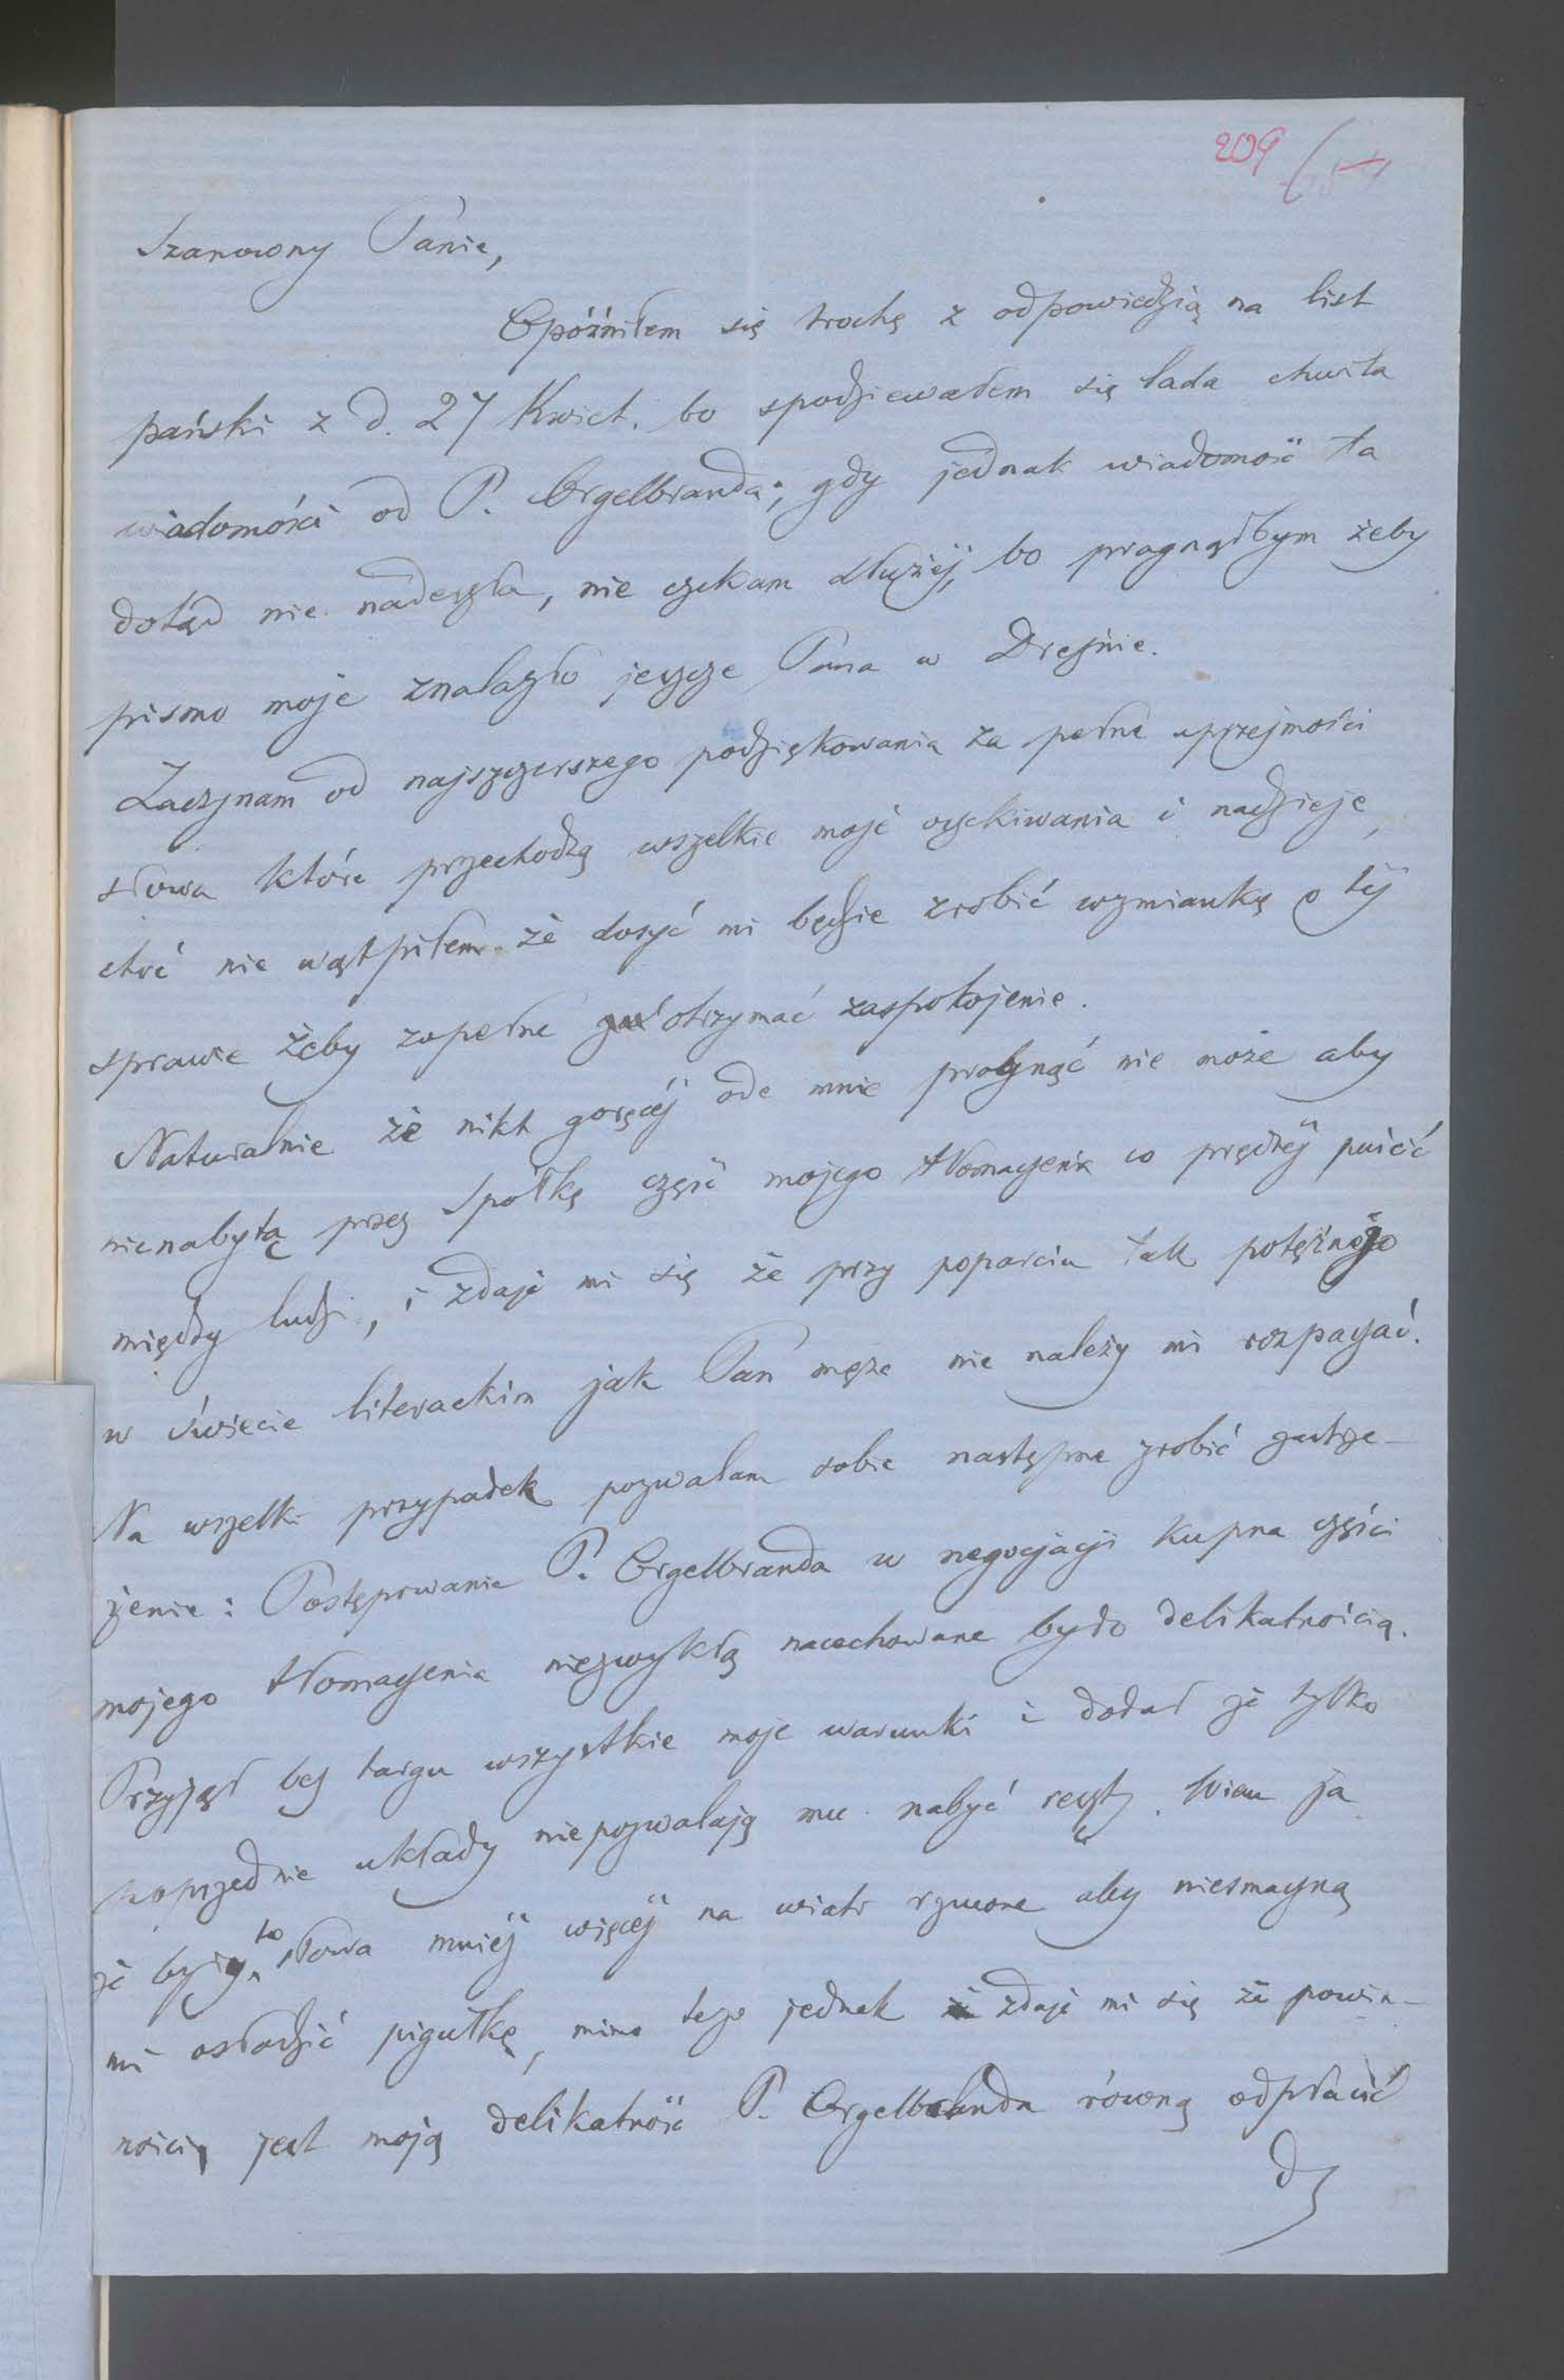 209
Szanowny Panie,
Opóźniłem się trochę z odpowiedzią na list
pański z d. 27 Kwiet. bo spodziewałem się lada chwila
wiadomości od P. Orgelbranda; gdy jednak wiadomość ta
dotąd nie nadeszła, nie czekam dłużéj, bo pragnąłbym żeby
pismo moje znalazło jeszcze Pana w Dreźnie.
Zaczynam od najszczerszego podziękowania za pełne uprzejmości
słowa które przechodzą wszelkie moje oczekiwania i nadzieje,
choć nie wątpiłem że dosyć mi będzie zrobić wzmiankę o téj
sprawie żeby zupełne otrzymać zaspokojenie.
Naturalnie że nikt goręcéj ode mnie pragnąć nie może aby
nienabytą przez Spółkę część mojego tłomaczenia co prędzéj puścić
między ludzi, i zdaje mi się że przy poparciu tak potężnego
w świecie literackim jak Pan męża nie należy mi rozpaczać.
Na wszelki przypadek pozwalam sobie następne zrobić zastrze-
żenie: Postępowanie P. Orgelbranda w negocjacji kupna części
mojego tłomaczenia niezwykłą nacechowane było delikatnością.
Przyjął bez targu wszystkie moje warunki i dodał że tylko
poprzednie układy niepozwalają mu nabyć reszty. Wiem ja
że były to słowa mniéj więcéj na wiatr rzucone aby niesmaczną
mi osłodzić pigułkę, mimo tego jednak zdaje mi się że powin-
nością jest moją delikatność P. Orgelbranda równą odpłacić